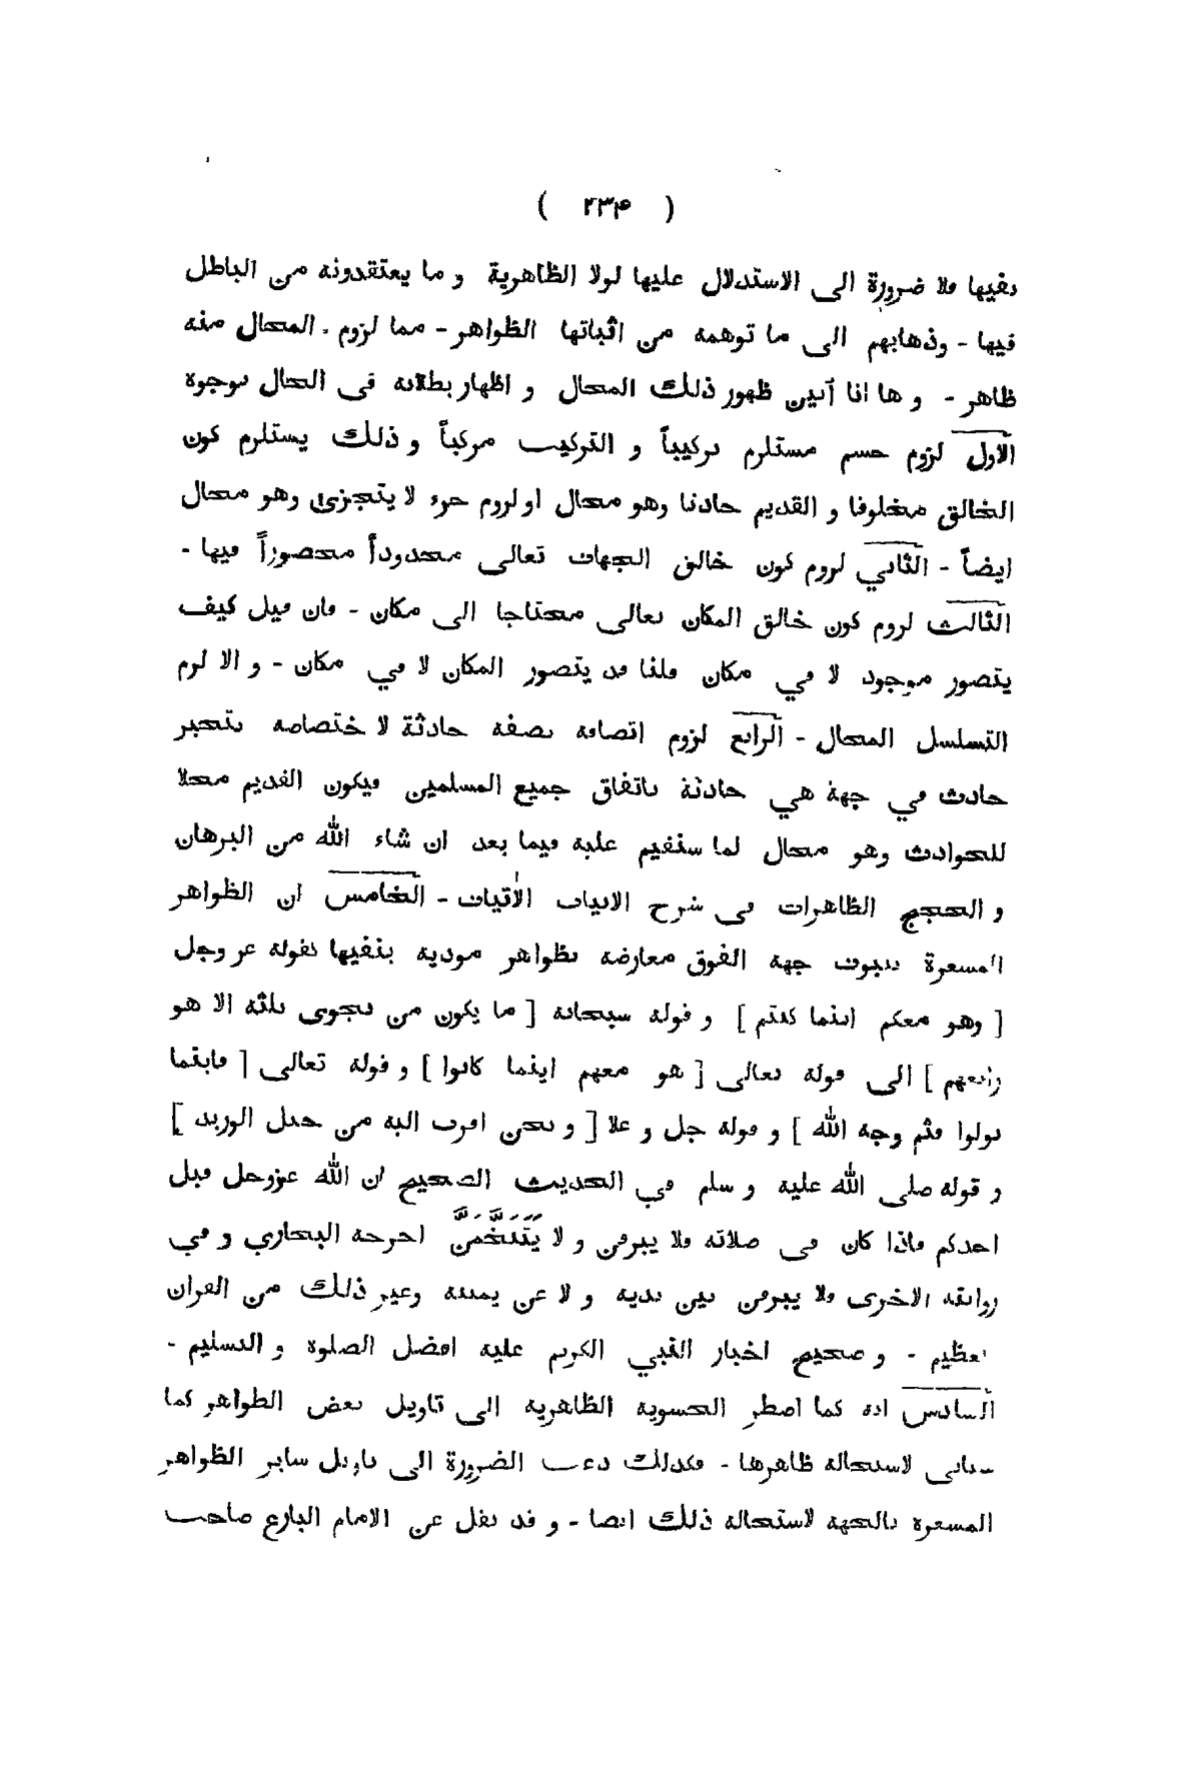 ( ٢٣۴ )
نفيها فلا ضرورة الى الاستدلال عليها لولا الظاهرية و ما يعتقدونه من الباطل
فيها - وذهابهم الى ما توهمه من اثباتها الظواهر - مما لزوم . المحال منه
ظاهر - و ها انا أبين ظهور ذلك المحال و اظهار بطلانه فى الحال بوجوه
الاول لزوم جسم مستلزم تركيباً و التركيب مركباً و ذلك يستلزم كون
الخالق مخلوقا و القديم حادثا وهو محال او لزوم جزء لا يتجزئ وهو محال
ايضاً - الثاني لزوم كون خالق الجهات تعالى محدوداً محصوراً فيها -
الثالث لزوم كون خالق المكان تعالى محتاجا الى مكان - فان قيل كيف
يتصور موجود لا في مكان قلنا قد يتصور المكان لا في مكان - و الا لزم
التسلسل المحال - الرابع لزوم اتصافه بصفة حادثة لا ختصاصه بتحيز
حادث في جهة هي حادثة باتفاق جميع المسلمين فيكون القديم محلا
للحوادث وهو محال لما سنقيم عليه فيما بعد ان شاء الله من البرهان
و الحجج الظاهرات فى شرح الابيات الأتيات - الخامس ان الظواهر
المشعرة بثبوت جهة الفوق معارضة بظواهر موذية بنفيها كقوله عز وجل
[ وهو معكم اينما كنتم ] و قوله سبحانه [ ما يكون من نجوى ثلثة الا هو
رابعهم ] الى قوله تعالى [ هو معهم اينما كانوا ] و قوله تعالى [ فاينما
تولوا فثم وجه الله ] و قوله جل و علا [ و نحن اقرب اليه من حبل الوريد ]
و قوله صلى الله عليه و سلم في الحديث الصحيح ان الله عزوجل قبل
احدكم فاذا كان فى صلاته فلا يبزقن و لا يَتَنَخَّمَنَّ اخرجه البخاري و في
روايته الاخرى فلا يبزقن بين يديه و لا عن يمينه وغير ذلك من القران
العظيم - و صحيح اخبار النبي الكريم عليه افضل الصلوة و التسليم -
السادس انه كما اضطر الحشوية الظاهرية الى تاويل بعض الظواهر كما
سياتى لاستحالة ظاهرها - فكذلك دعت الضرورة الى تاويل ساير الظواهر
المشعرة بالجهة لاستحالة ذلك ايضا - و قد نقل عن الامام البارع صاحب